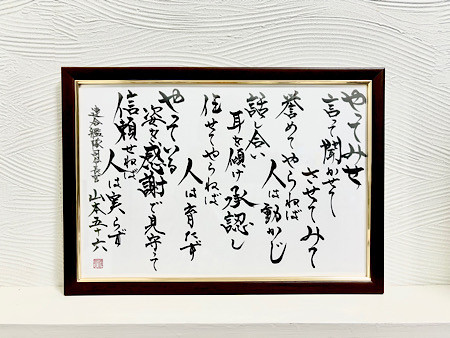 やってみせ
言って聞かせて
させてみて
誉めてやらねば
人は動かじ
話し合い
耳を傾け承認し
任せてやらねば
人は育たず
やっている
姿を感謝で見守って
信頼せねば
人は実らず
連合艦隊司令長官
山本五十六